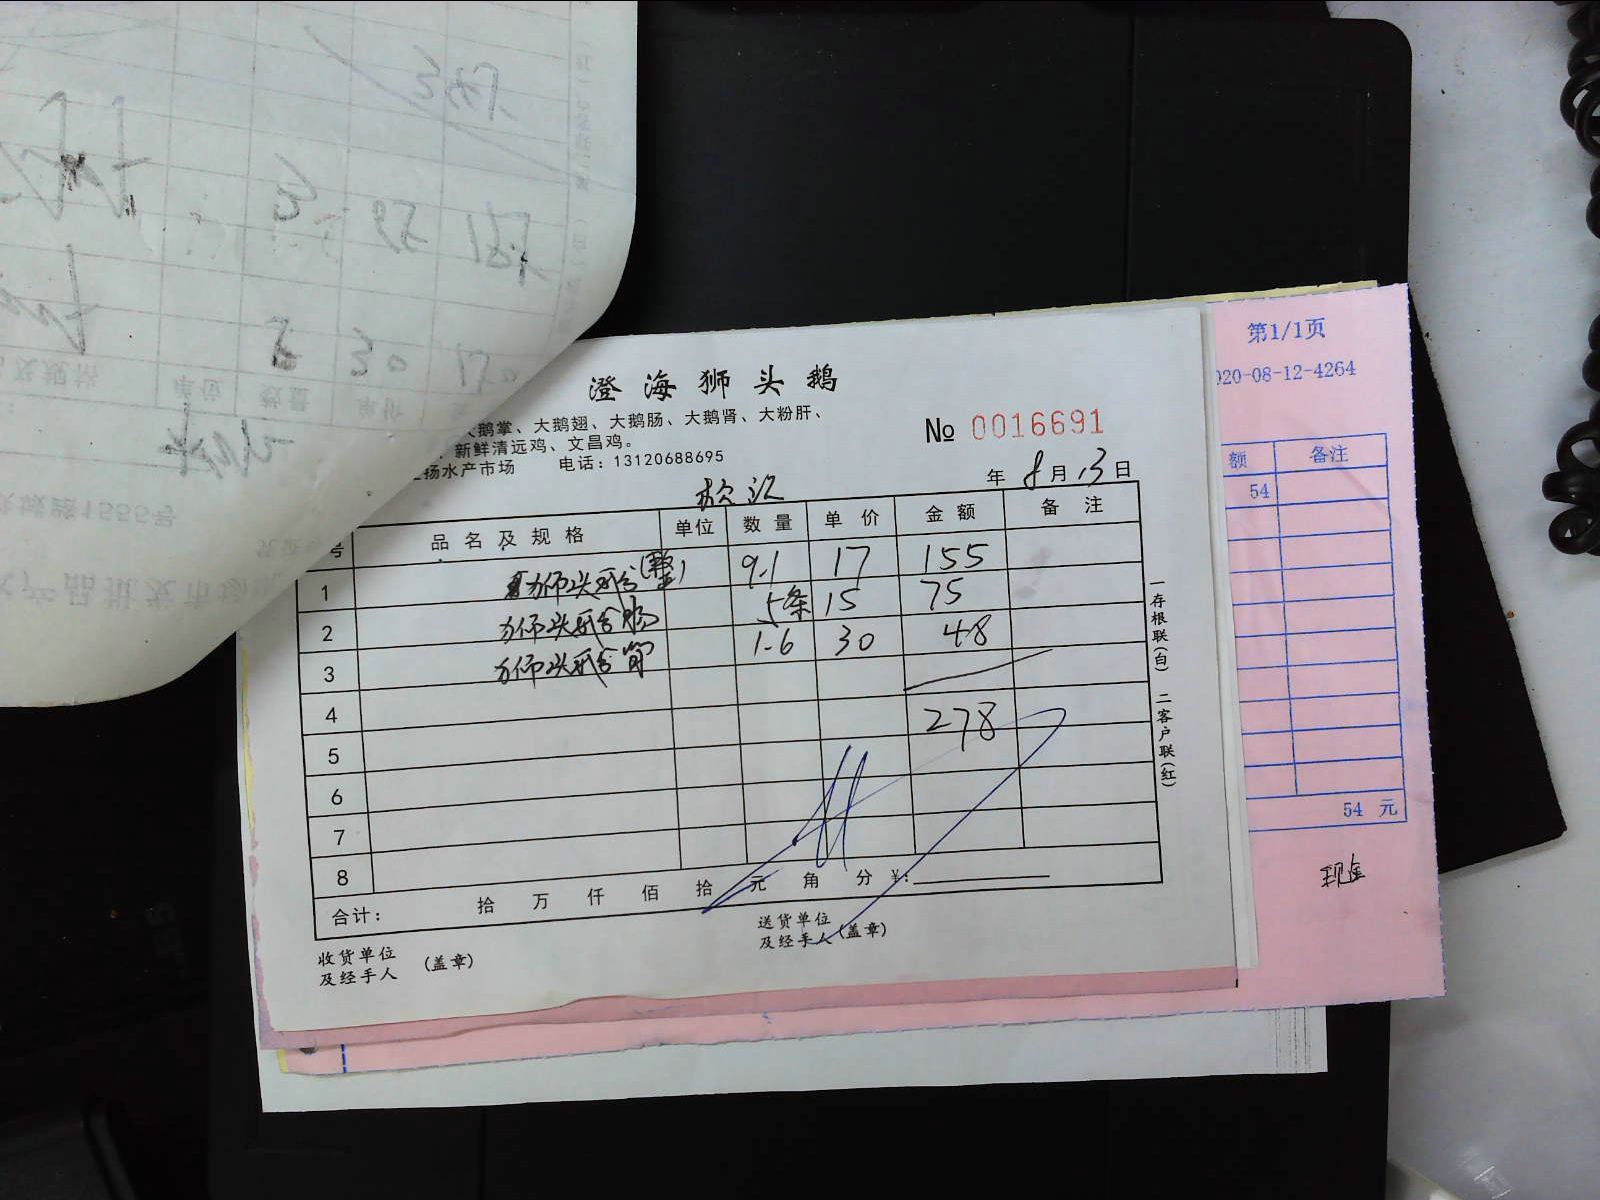 澄海狮头鹅
大鹅掌、大鹅翅、大鹅肠、大鹅肾、大粉肝、
新鲜清远鸡、文昌鸡。
扬水产市场 电话：13120688695
№ 0016691
年 8 月 13 日
号 品名及规格 单位 数量 单价 金额 备注
1 狮头鹅(整) 9.1 17 155
2 狮头鹅肠 5条 15 75
3 狮头鹅肾 1.6 30 48
4 278
5
6
7
8
合计： 拾 万 仟 佰 拾 元 角 分 ¥:
收货单位
及经手人 (盖章)
送货单位
及经手人 (盖章)
一存根联(白) 二客户联(红)
第1/1页
020-08-12-4264
额 备注
54
54 元
现金